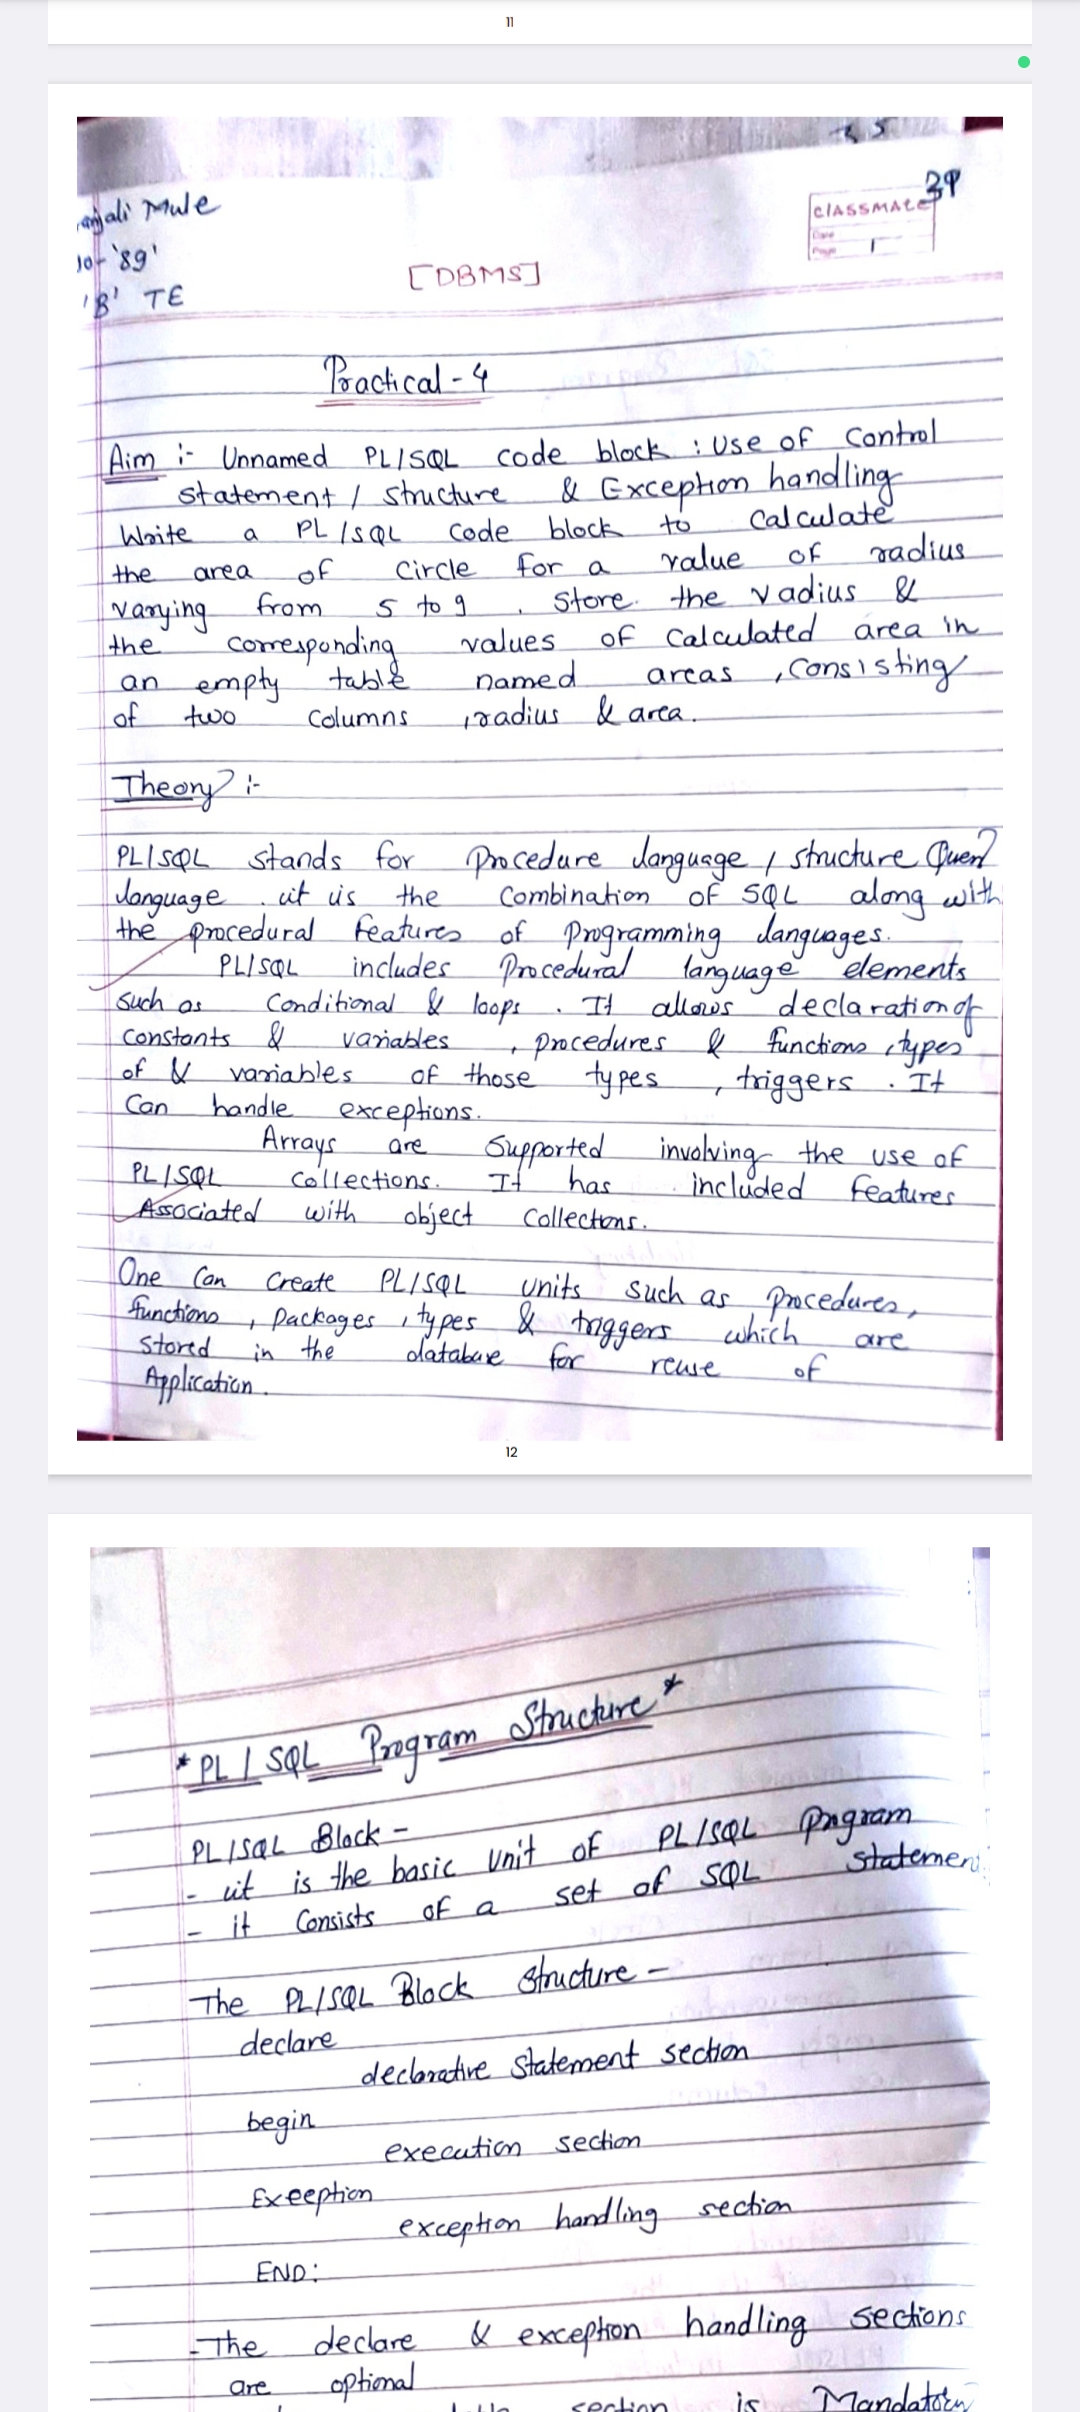 11
anjali Mule
39
CLASSMATE
Date
Page 1
'89'
[DBMS]
'B' TE
Practical - 4
Aim :- Unnamed PL/SQL code block : Use of Control
statement / structure & Exception handling
Write a PL/SQL code block to calculate
the area of circle for a value of radius
varying from 5 to 9. Store the radius &
the corresponding values of calculated area in
an empty table named areas, consisting
of two columns, radius & area.
Theory :-
PL/SQL stands for Procedure language / structure Query
language. it is the combination of SQL along with
the procedural features of programming languages.
PL/SQL includes Procedural language elements
such as conditional & loops. It allows declaration of
constants & variables, procedures & functions, types
of & variables of those types, triggers. It
can handle exceptions.
Arrays are supported involving the use of
PL/SQL collections. It has included features
Associated with object collections.
One can create PL/SQL units such as procedures,
functions, packages, types & triggers which are
stored in the database for reuse of
Application.
12
*PL/SQL Program Structure*
PL/SQL Block -
- it is the basic unit of PL/SQL program
- it consists of a set of SQL statement
The PL/SQL Block structure -
declare
declarative statement section
begin
execution section
Exeeption
exception handling section
END:
- The declare & exception handling sections
are optional
section is Mandatory